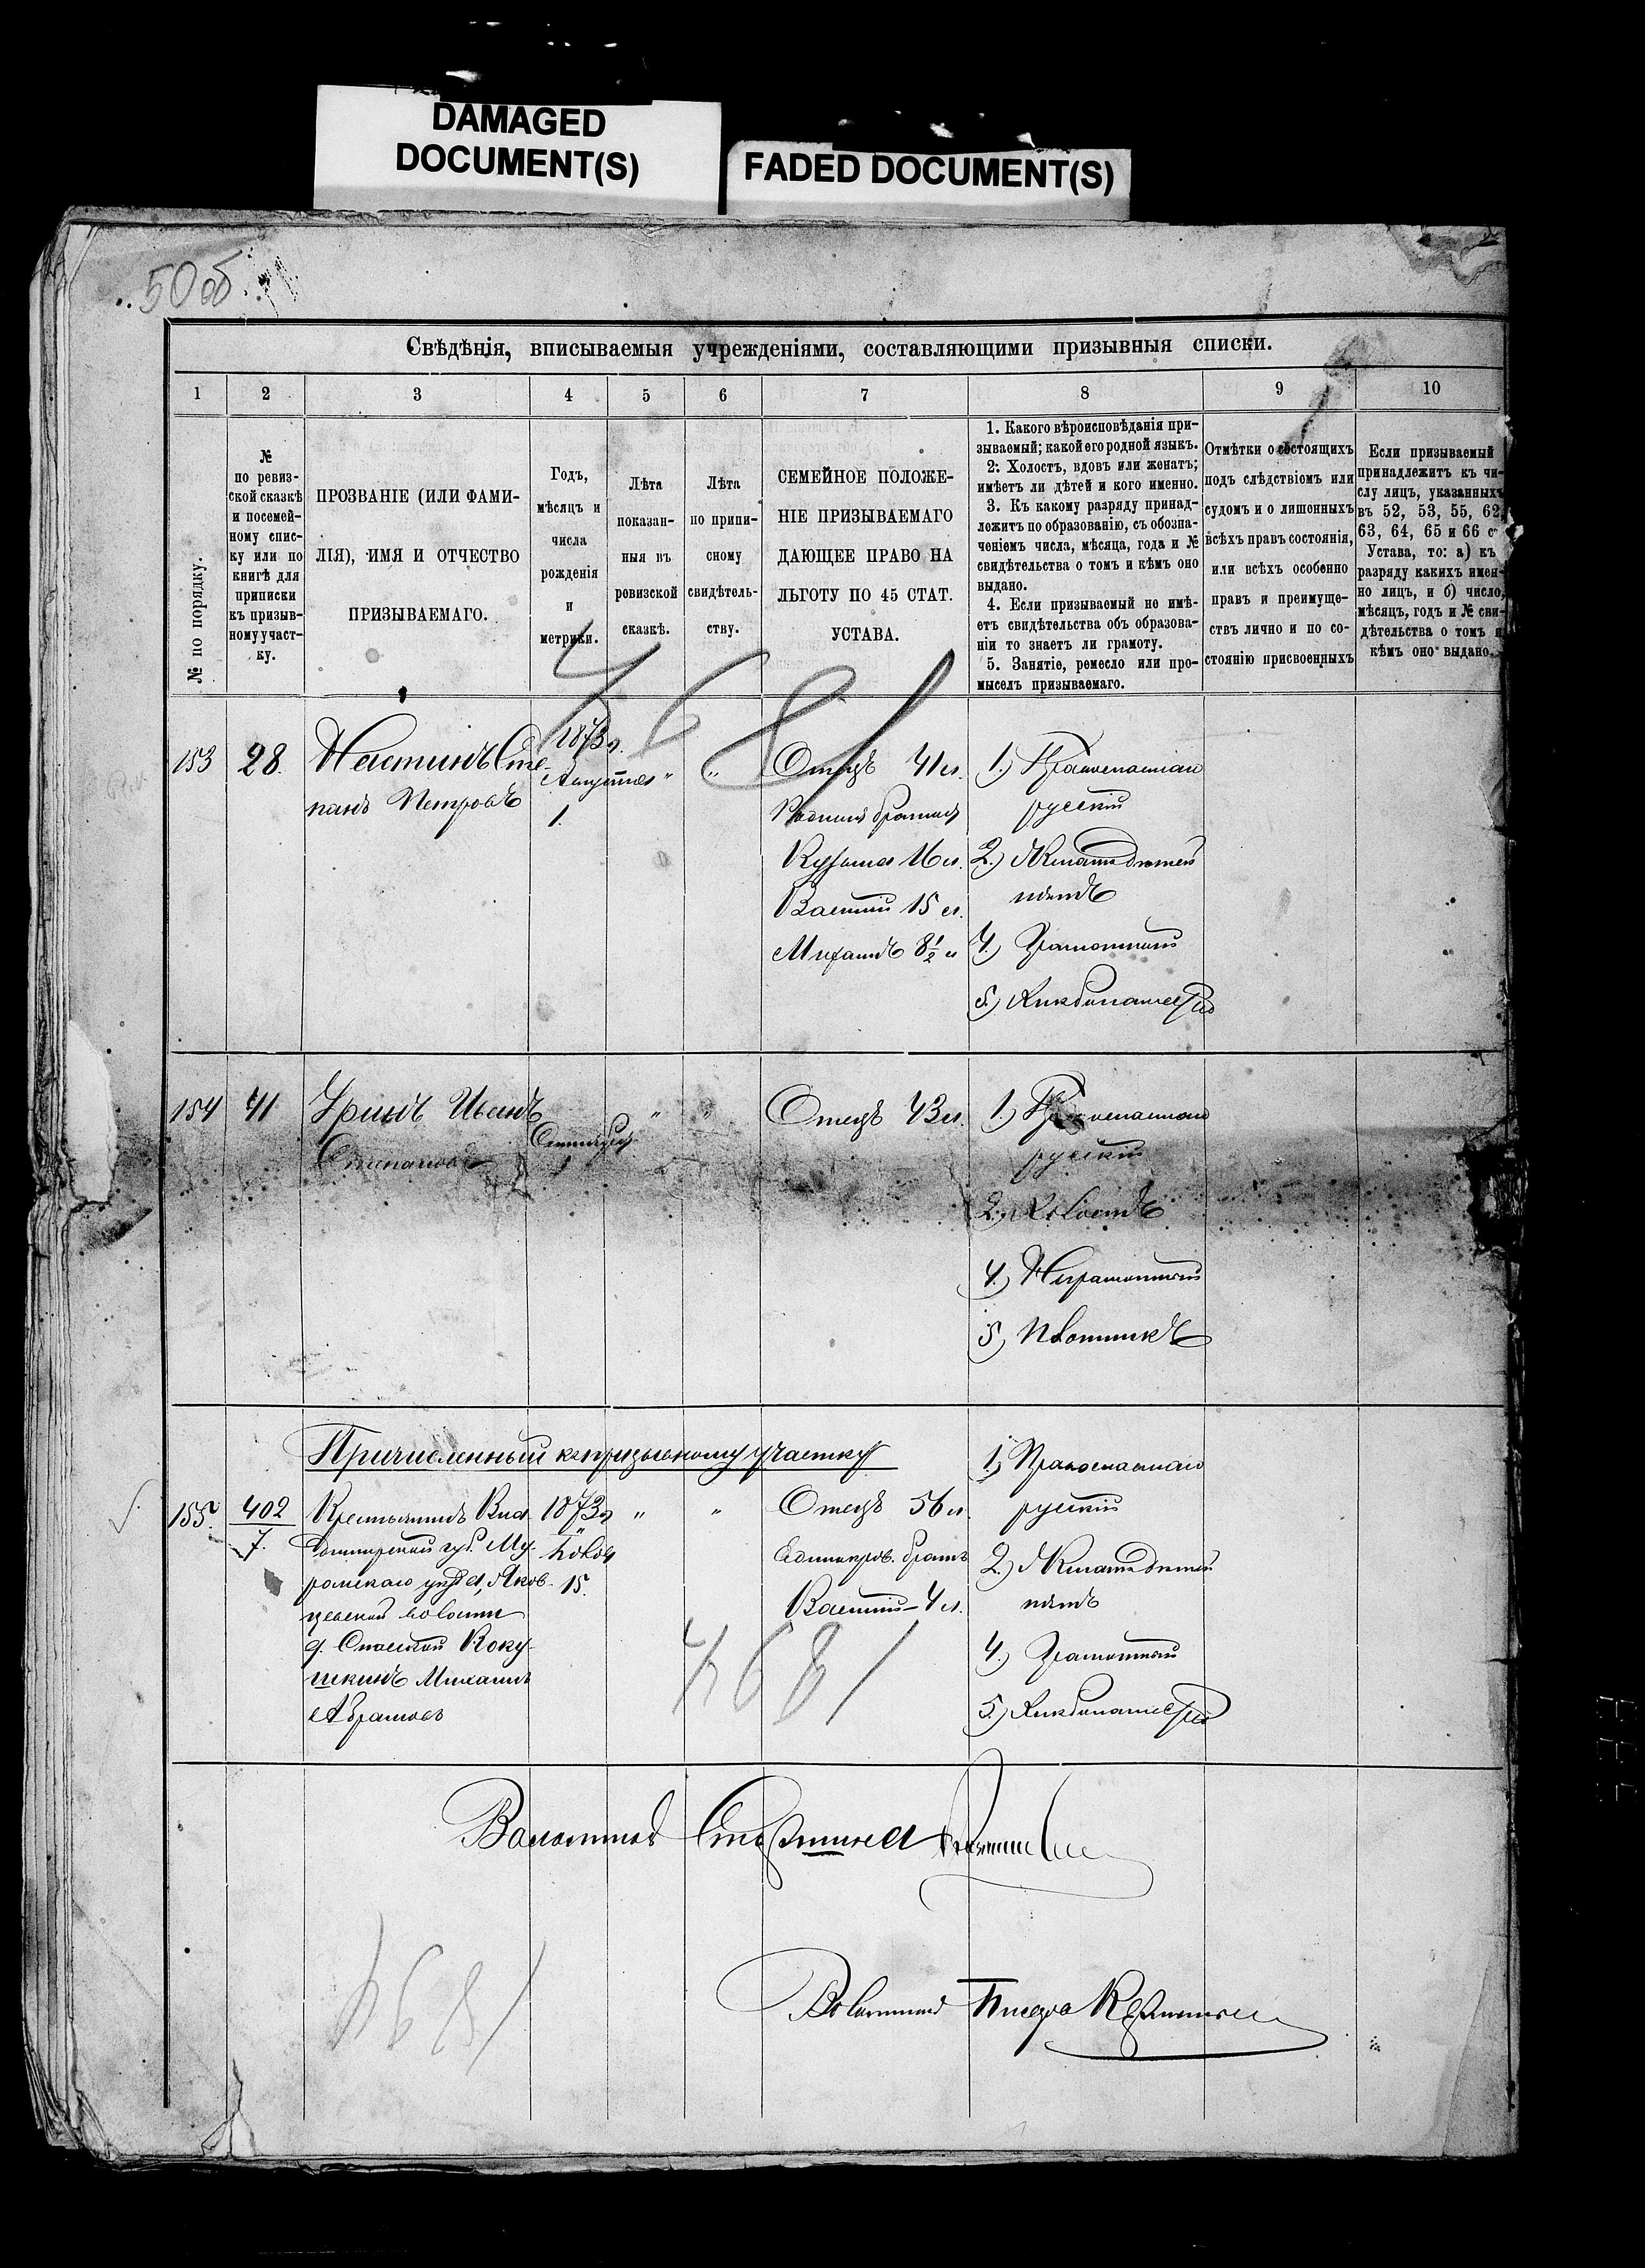 DAMAGED
DOCUMENT(S)
FADED DOCUMENT(S)
50об.
Свѣдѣнія, вписываемыя учрежденіями, составляющими призывныя списки.
1 2 3 4 5 6 7 8 9 10
№ по порядку.
№
по ревиз-
ской сказкѣ
и посемей-
ному спис-
ку или по
книгѣ для
приписки
къ призыв-
ному участ-
ку.
ПРОЗВАНІЕ (ИЛИ ФАМИ-
ЛІЯ), ИМЯ И ОТЧЕСТВО
ПРИЗЫВАЕМАГО.
Годъ,
мѣсяцъ и
числа
рожденія
и
метрики.
Лѣта
показан-
ныя въ
ревизской
сказкѣ.
Лѣта
по припи-
сному
свидѣтель-
ству.
СЕМЕЙНОЕ ПОЛОЖЕ-
НІЕ ПРИЗЫВАЕМАГО
ДАЮЩЕЕ ПРАВО НА
ЛЬГОТУ ПО 45 СТАТ.
УСТАВА.
1. Какого вѣроисповѣданія при-
зываемый; какой его родной языкъ.
2. Холостъ, вдовъ или женатъ;
имѣетъ ли дѣтей и кого именно.
3. Къ какому разряду принад-
лежитъ по образованію, съ обозна-
ченіемъ числа, мѣсяца, года и №
свидѣтельства о томъ и кѣмъ оно
выдано.
4. Если призываемый не имѣ-
етъ свидѣтельства объ образова-
ніи то знаетъ ли грамоту.
5. Занятіе, ремесло или про-
мыселъ призываемаго.
Отмѣтки о состоящихъ
подъ слѣдствіемъ или
судомъ и о лишонныхъ
всѣхъ правъ состоянія,
или всѣхъ особенно
правъ и преимуще-
ствъ лично и по со-
стоянію присвоенныхъ
Если призываемый
принадлежитъ къ чи-
слу лицъ, указанныхъ
въ 52, 53, 55, 62,
63, 64, 65 и 66 ст
Устава, то: а) къ
разряду какихъ имен-
но лицъ, и б) число,
мѣсяцъ, годъ и № сви-
дѣтельства о томъ и
кѣмъ оно выдано.
4681
153 28. Настинъ Сте-
панъ Петровъ
1873г.
Августа
1.
" "
Отецъ 41 л.
Родныя братья
Кузьма 16 л.
Василій 15 л.
Михаилъ 8½ л
1.) Православнаго
русскій
2.) Женатъ дѣтей
нѣтъ
4.) Грамотный
5.) Хлѣбопашество
154 41 Уринъ Иванъ
Степановъ
Сентября
1
" "
Отецъ 43 л.
1.) Православнаго
русскій
2.) Холостъ
4.) Неграмотный
5.) Плотникъ
Причисленный къ призывному участку
155. 402
7.
Крестьянинъ Вла-
димирской губ. Му-
ромскаго уѣзда, Яков-
цевской волости
д. Спасской Коку-
шкинъ Михаилъ
Абрамовъ
1873г
Ноября
15.
" "
Отецъ 56 л.
Единокров. братъ
Василій - 4 л.
1.) Православнаго
русскій
2.) Женатъ дѣтей
нѣтъ
4.) Грамотный
5.) Хлѣбопашество
4681
Волостной Старшина
4681
Волостной Писарь